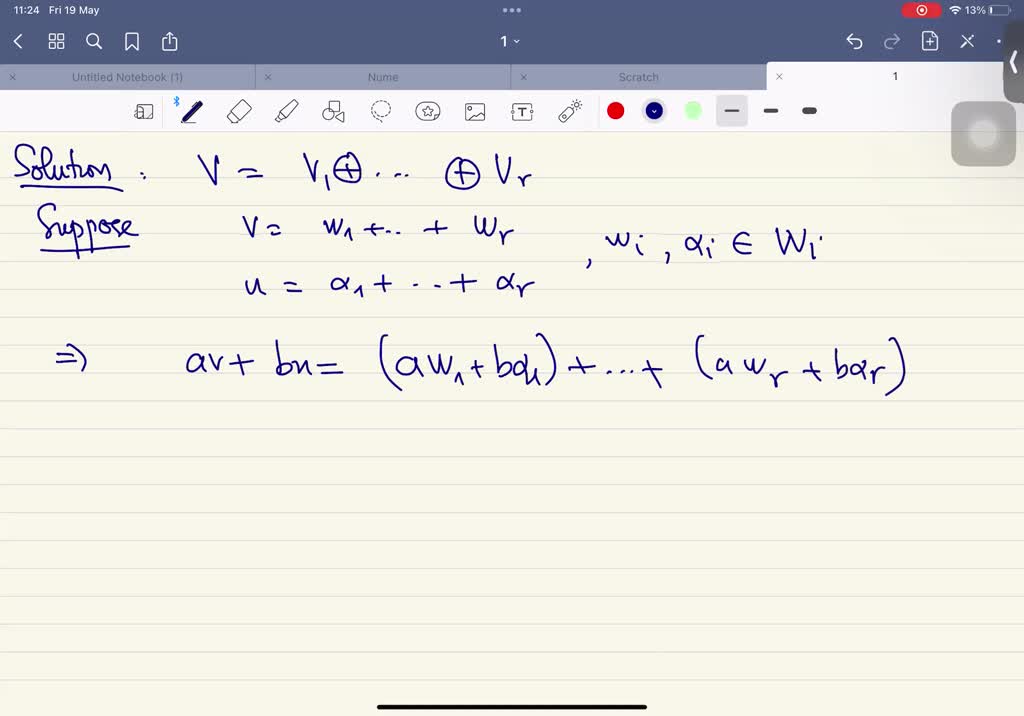 11:24 Fri 19 May
13%
1
Untitled Notebook (1)
Nume
Scratch
1
Solution : V = V₁ ⊕ ... ⊕ Vr
Suppose v = w₁ + .. + wr
, wi , αi ∈ Wi
u = α₁ + ... + αr
⇒ av + bu = (aw₁ + bα₁) + ... + (awr + bαr)